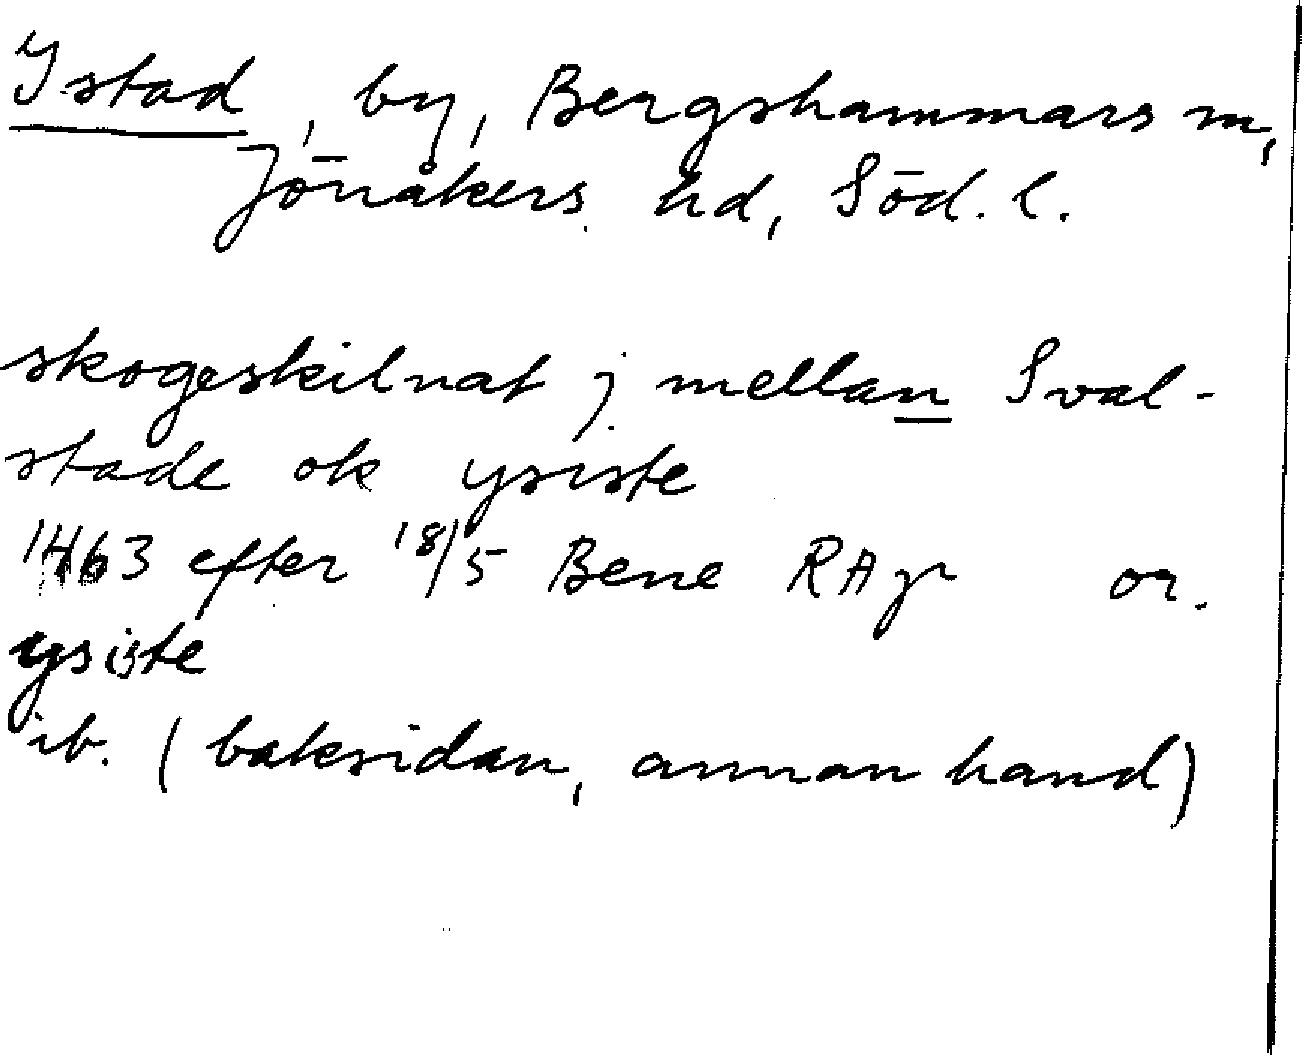 Ystad, by, Bergshammars sn,
Jönåkers hd, Söd. l.
skogeskilnat j mellan Sval-
stade ok ysiste
1463 efter 18/5 Bene RAp or.
ysiste
ib. (baksidan, annan hand)